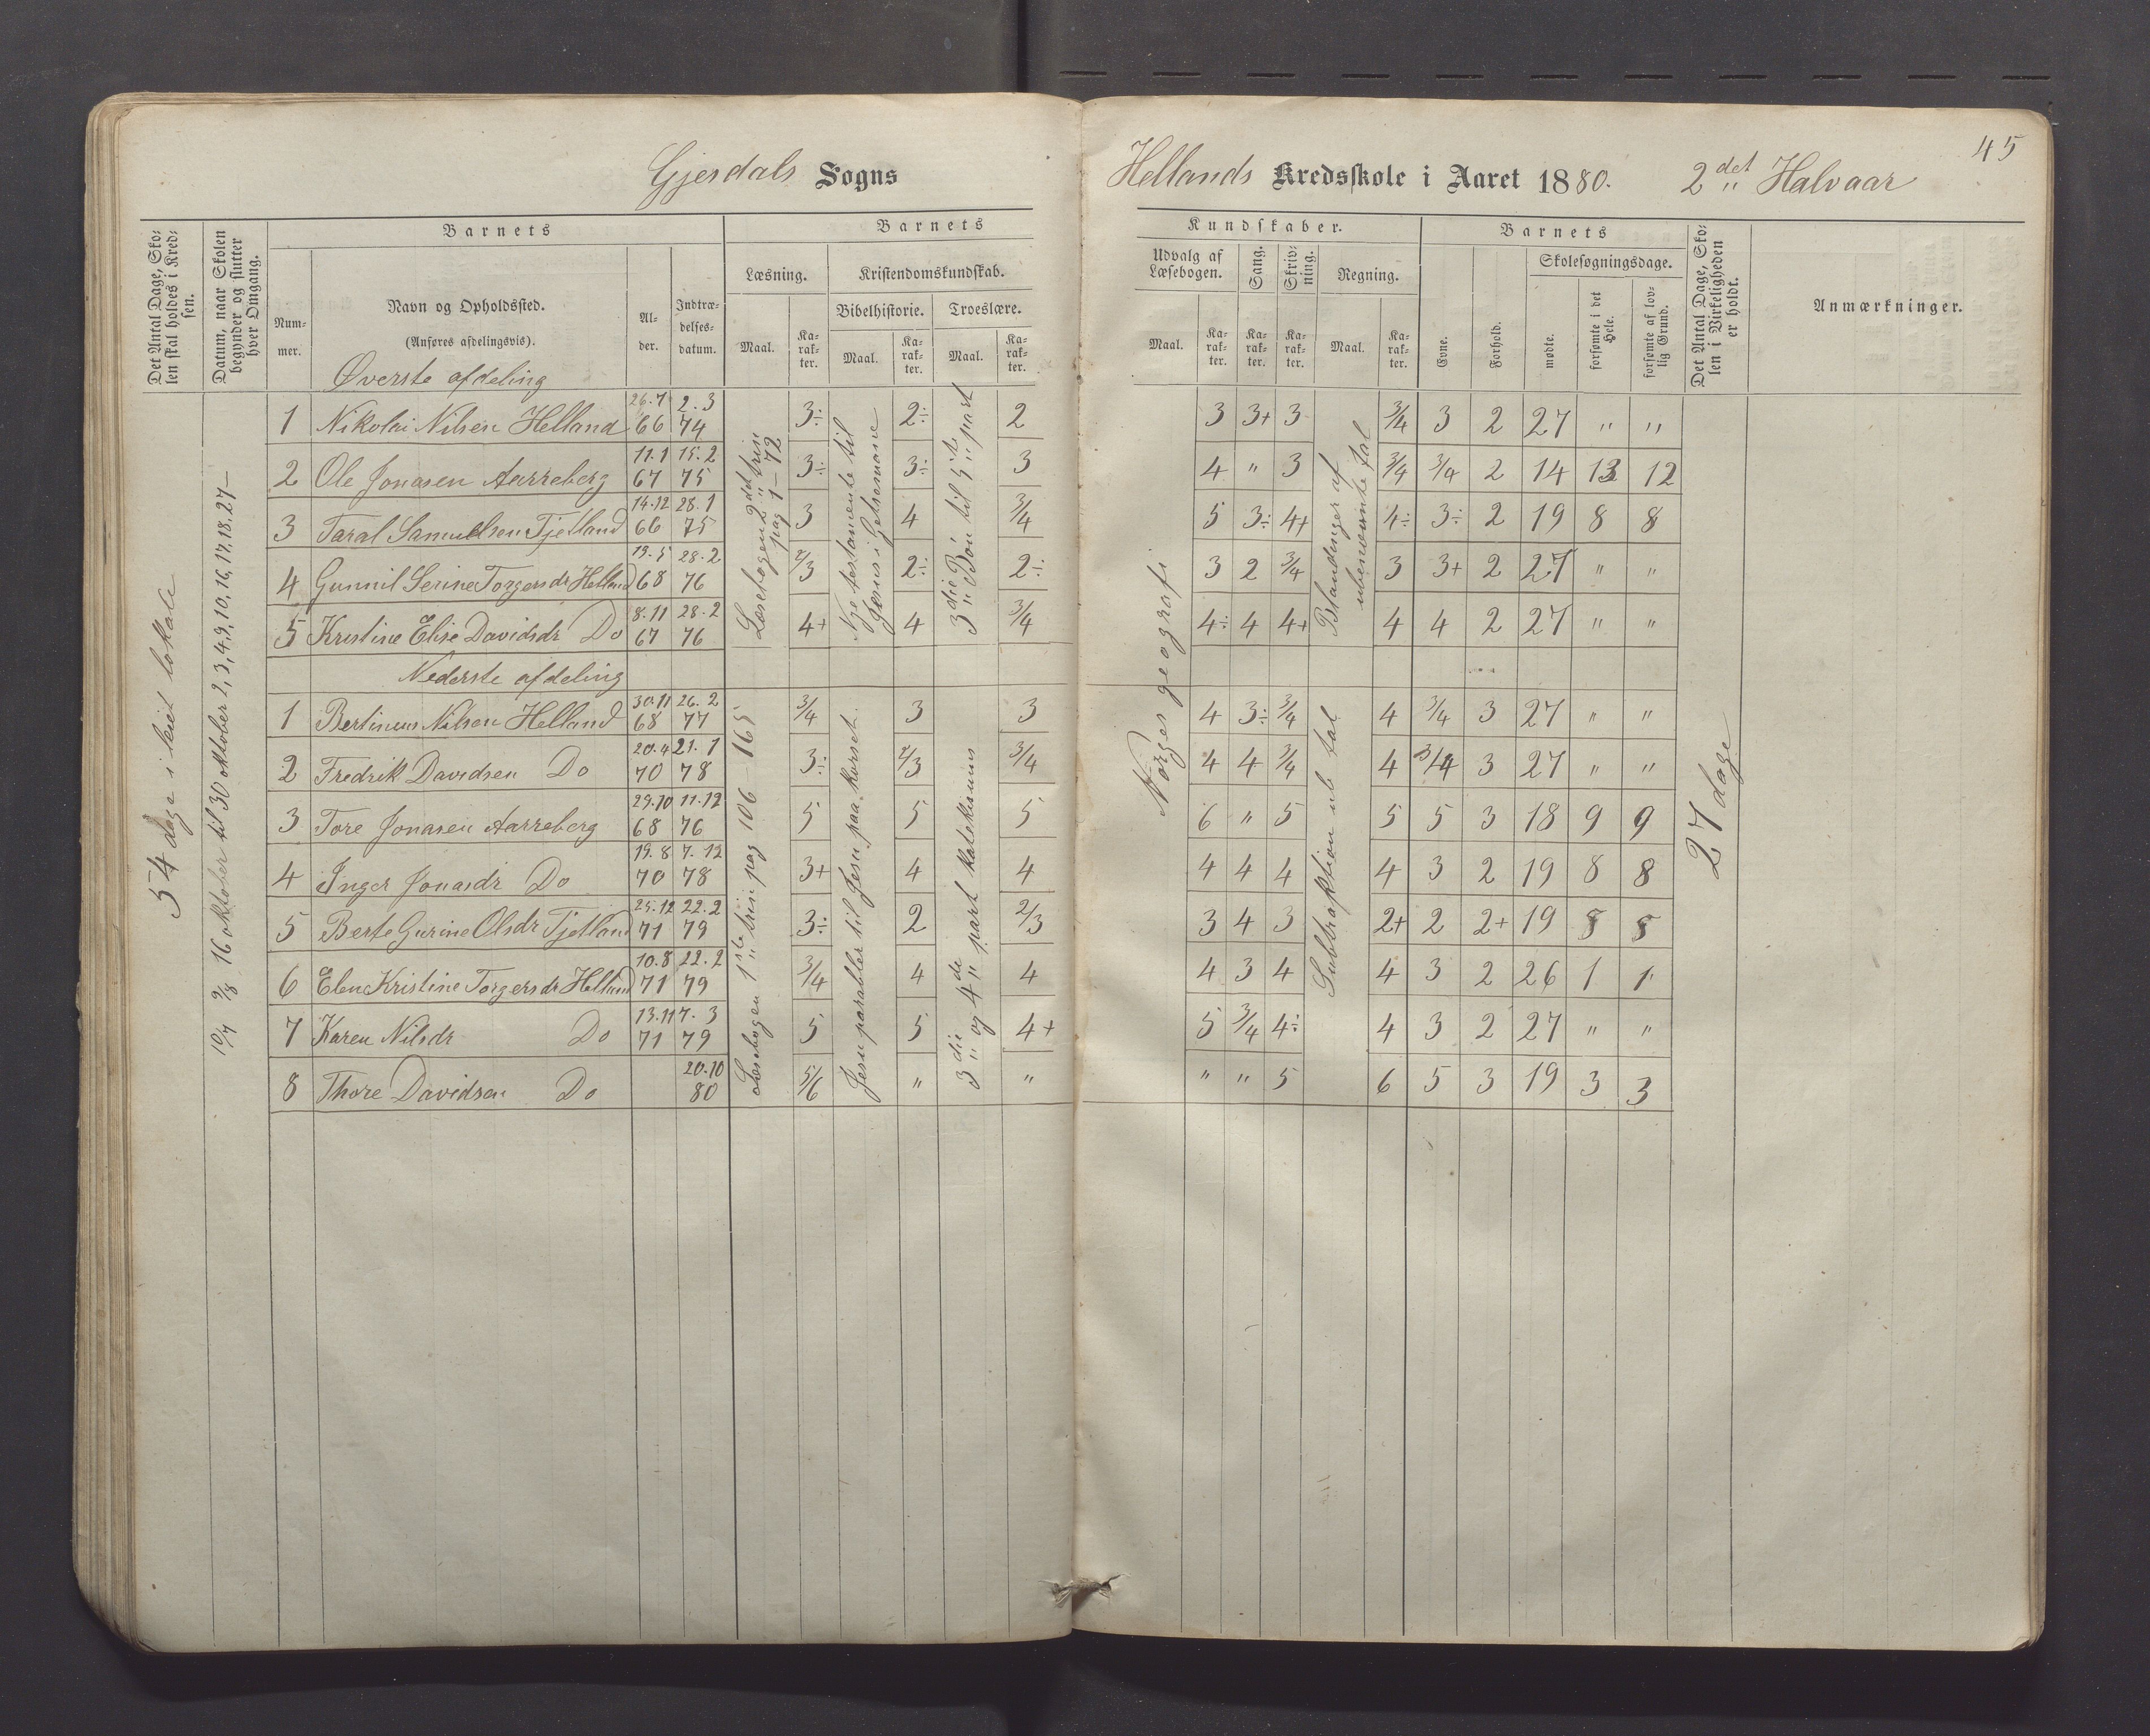 45
Gjesdals Sogns Hellands Kredsskole i Aaret 1880. 2det Halvaar
Det Antal Dage, Sko-
len skal holdes i Kred-
sen.
Datum, naar Skolen
begynder og slutter
hver Omgang.
Barnets
Num-
mer.
Navn og Opholdssted.
(Anføres afdelingsvis).
Al-
der.
Indtræ-
delses-
datum.
Barnets
Læsning.
Maal.
Ka-
rak-
ter.
Kristendomskundskab.
Bibelhistorie.
Maal.
Ka-
rak-
ter.
Troeslære.
Maal.
Ka-
rak-
ter.
Kundskaber.
Udvalg af
Læsebogen.
Maal.
Ka-
rak-
ter.
Sang.
Ka-
rak-
ter.
Skriv-
ning.
Ka-
rak-
ter.
Regning.
Maal.
Ka-
rak-
ter.
Barnets
Evne.
Forhold.
Skolesøgningsdage.
mødte.
forsømte i det
Hele.
forsømte af lov-
lig Grund.
Det Antal Dage, Sko-
len i Virkeligheden
er holdt.
Anmærkninger.
54 dage i leiet lokale
10/7 9/8 16 oktober til 30 oktober 2, 3, 4, 9, 10, 16, 17, 18, 27 —
Øverste afdeling
1 Nikolai Nilsen Helland 26.7 66 2.3 74 3÷ 2÷ 2 3 3+ 3 3/4 3 2 27 " "
2 Ole Jonasen Aarreberg 11.1 67 15.2 75 3÷ 3÷ 3 4 " 3 3/4 3/4 2 14 13 12
3 Taral Samuelsen Tjetland 14.12 66 28.1 75 3 4 3/4 5 3÷ 4+ 4÷ 3÷ 2 19 8 8
4 Gunnil Serine Torgersdr Helland 19.5 68 28.2 76 2/3 2÷ 2÷ 3 2 3/4 3 3+ 2 27 " "
5 Kristine Elise Davidsdr Do 8.11 67 28.2 76 4+ 4 3/4 4÷ 4 4+ 4 4 2 27 " "
Læsebogen 2det trin
pag 1 – 72
Nye testamente til
Jesus i Getsemane
3die Bøn til 5te part
Norges geografi
Blandinger af
ubenævnte tal
Nederste afdeling
1 Bertinius Nilsen Helland 30.11 68 26.2 77 3/4 3 3 4 3÷ 3/4 4 3/4 3 27 " "
2 Fredrik Davidsen Do 20.4 70 21.1 78 3÷ 2/3 3/4 4 4 3/4 4 3/4 3 27 " "
3 Tore Jonasen Aarreberg 29.10 68 11.12 76 5 5 5 6 " 5 5 5 3 18 9 9
4 Inger Jonasdr Do 19.8 70 7.12 78 3+ 4 4 4 4 4 4 3 2 19 8 8
5 Berte Gurine Olsdr Tjetland 25.12 71 22.2 79 3÷ 2 2/3 3 4 3 2+ 2 2+ 19 8 8
6 Elen Kristine Torgersdr Helland 10.8 71 22.2 79 3/4 4 4 4 3 4 4 3 2 26 1 1
7 Karen Nilsdr Do 13.11 71 7.3 79 5 5 4+ 5 3/4 4÷ 4 3 2 27 " "
8 Thore Davidsen Do 20.10 80 5/6 " " " " 5 6 5 3 19 3 3
Læsebogen 1ste trin pag 106 – 165
Jesu parabler til Jesu paa korset.
3die og 4de part katekismus
Subtraktion ub tal
27 dage